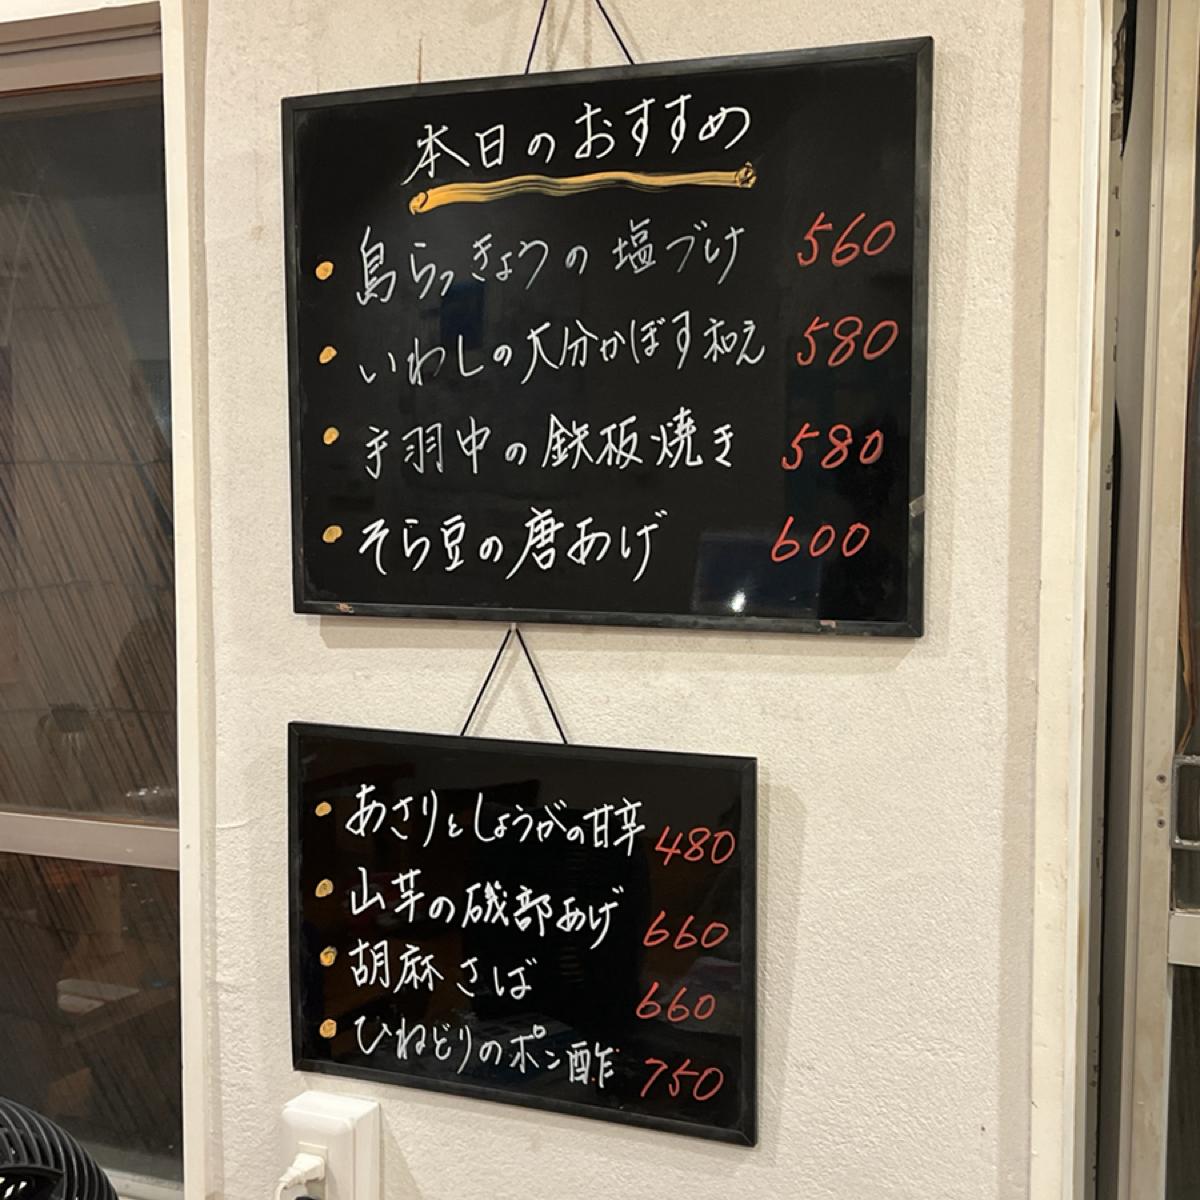 本日のおすすめ
・島らっきょうの塩づけ 560
・いわしの大分かぼす和え 580
・手羽中の鉄板焼き 580
・そら豆の唐あげ 600
・あさりとしょうがの甘辛 480
・山芋の磯部あげ 660
・胡麻さば 660
・ひねどりのポン酢 750